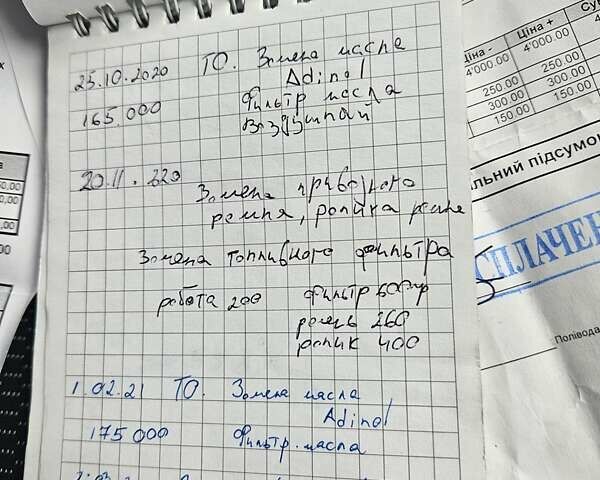 25.10.2020 ТО. Замена масла
Adinol
165.000 Фильтр масла
воздушный
20.11.220 Замена приводного
ремня, ролика ремня
Замена топливного фильтра
робота 200 фильтр 600гр
ремень 260
ролик 400
1.02.21 ТО. Замена масла
Adinol
175000 Фильтр. масла
Ціна - Ціна +
4'000.00 4'000.00
250.00 250.00
300.00 300.00
150.00 150.00
альний підсумо
СПЛАЧЕН
Полівода